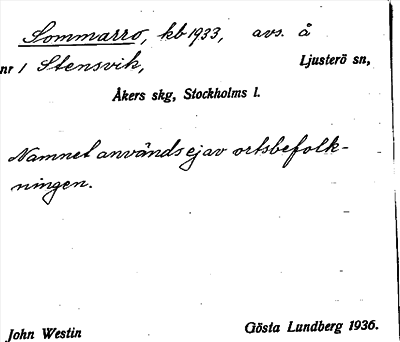 Sommarro, kb 1933, avs. å
nr 1 Stensvik, Ljusterö sn,
Åkers skg, Stockholms l.
Namnet används ej av ortsbefolk-
ningen.
John Westin Gösta Lundberg 1936.